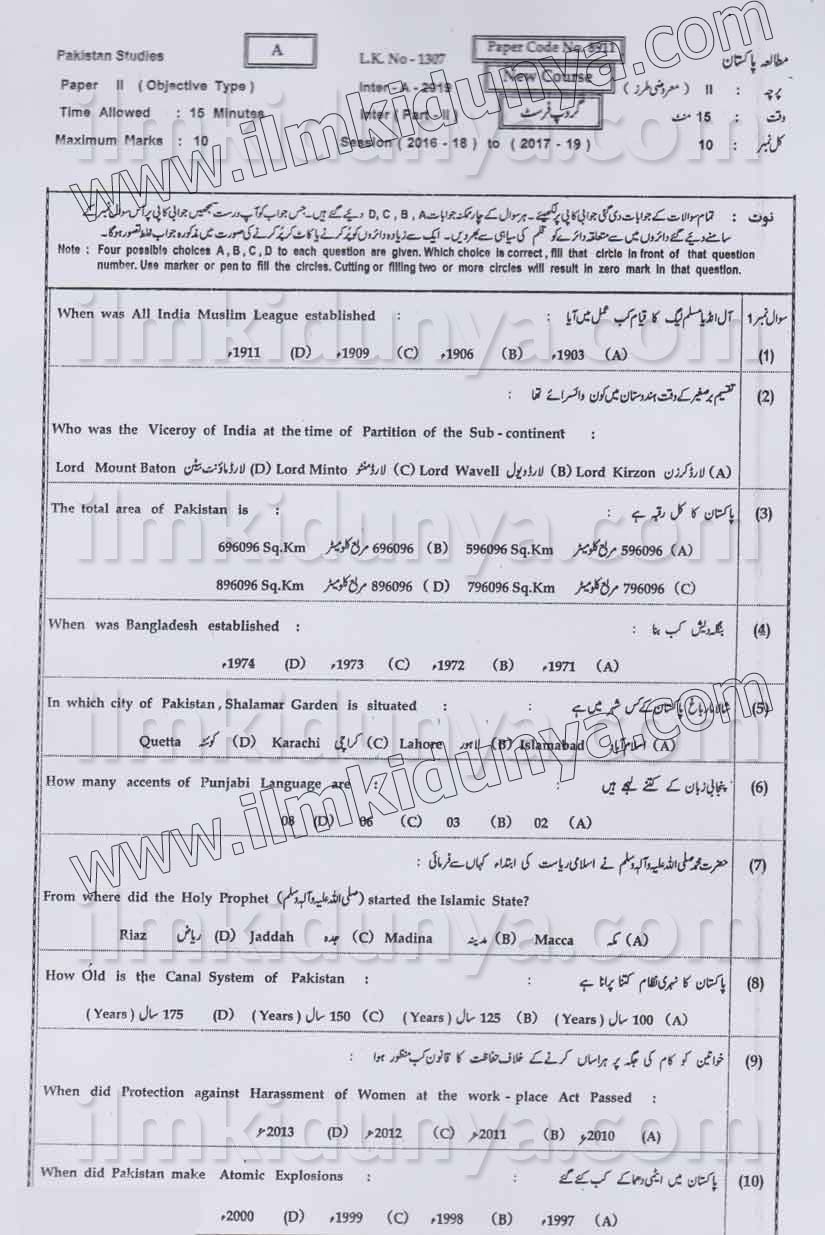 Pakistan Studies A L.K. No - 1307 Paper Code No. 8911 مطالعہ پاکستان
Paper II ( Objective Type ) Inter - A - 2019 New Course پرچہ : II ( معروضی طرز )
Time Allowed : 15 Minutes Inter ( Part - II ) گروپ فرسٹ وقت : 15 منٹ
Maximum Marks : 10 Session ( 2016 - 18 ) to ( 2017 - 19 ) کل نمبر : 10
www.ilmkidunya.com
نوٹ : تمام سوالات کے جوابات دی گئی جوابی کاپی پر لکھیئے ۔ ہر سوال کے چار ممکنہ جوابات D , C , B , A دیئے گئے ہیں۔ جس جواب کو آپ درست سمجھیں جوابی کاپی پر اُس سوال نمبر کے
سامنے دیئے گئے دائروں میں سے متعلقہ دائرے کو قلم کی سیاہی سے بھر دیں۔ ایک سے زیادہ دائروں کو پُر کرنے یا کاٹ کر پُر کرنے کی صورت میں مذکورہ جواب غلط تصور ہوگا۔
Note : Four possible choices A , B , C , D to each question are given. Which choice is correct , fill that circle in front of that question
number. Use marker or pen to fill the circles. Cutting or filling two or more circles will result in zero mark in that question.
When was All India Muslim League established : آل انڈیا مسلم لیگ کا قیام کب عمل میں آیا : سوال نمبر 1
1911ء (D) 1909ء (C) 1906ء (B) 1903ء (A) (1)
تقسیم برصغیر کے وقت ہندوستان میں کون وائسرائے تھا : (2)
Who was the Viceroy of India at the time of Partition of the Sub - continent :
Lord Mount Baton لارڈ ماؤنٹ بیٹن (D) Lord Minto لارڈ منٹو (C) Lord Wavell لارڈ ویول (B) Lord Kirzon لارڈ کرزن (A)
The total area of Pakistan is : پاکستان کا کل رقبہ ہے : (3)
696096 Sq.Km مربع کلومیٹر 696096 (B) 596096 Sq.Km مربع کلومیٹر 596096 (A)
896096 Sq.Km مربع کلومیٹر 896096 ( D) 796096 Sq.Km مربع کلومیٹر 796096 (C)
When was Bangladesh established : بنگلہ دیش کب بنا : (4)
1974ء (D) 1973ء (C) 1972ء (B) 1971ء (A)
In which city of Pakistan , Shalamar Garden is situated : شالامار باغ پاکستان کے کس شہر میں ہے : (5)
Quetta کوئٹہ (D) Karachi کراچی (C) Lahore لاہور (B) Islamabad اسلام آباد (A)
How many accents of Punjabi Language are : پنجابی زبان کے کتنے لہجے ہیں : (6)
08 (D) 06 (C) 03 (B) 02 (A)
www.ilmkidunya.com
حضرت محمد صلی اللہ علیہ وآلہ وسلم نے اسلامی ریاست کی ابتداء کہاں سے فرمائی : (7)
From where did the Holy Prophet (صلی اللہ علیہ وآلہ وسلم) started the Islamic State?
Riaz ریاض (D) Jaddah جدہ (C) Madina مدینہ (B) Macca مکہ (A)
How Old is the Canal System of Pakistan : پاکستان کا نہری نظام کتنا پرانا ہے : (8)
(Years) سال 175 (D) (Years) سال 150 (C) (Years) سال 125 (B) (Years) سال 100 (A)
خواتین کو کام کی جگہ پر ہراساں کرنے کے خلاف حفاظت کا قانون کب منظور ہوا : (9)
When did Protection against Harassment of Women at the work - place Act Passed :
2013ء (D) 2012ء (C) 2011ء (B) 2010ء (A)
When did Pakistan make Atomic Explosions : پاکستان میں ایٹمی دھماکے کب کئے گئے : (10)
2000ء (D) 1999ء (C) 1998ء (B) 1997ء (A)
ilmkidunya.com
ilmkidunya.com
ilmkidunya.com
ilmkidunya.com
ilmkidunya.com
ilmkidunya.com
ilmkidunya.com